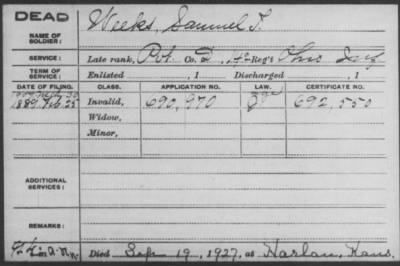 DEAD
NAME OF SOLDIER: Weeks, Samuel T.
SERVICE: Late rank, Pvt Co. D, Reg't Ohio Inf
TERM OF SERVICE: Enlisted , 1 Discharged , 1
DATE OF FILING. CLASS. APPLICATION NO. LAW. CERTIFICATE NO.
1889 Feb. 25 Invalid, 690,970 692,550
Widow,
Minor,
ADDITIONAL SERVICES:
REMARKS:
Died Sep 19, 1927, at Harlan, Kans.